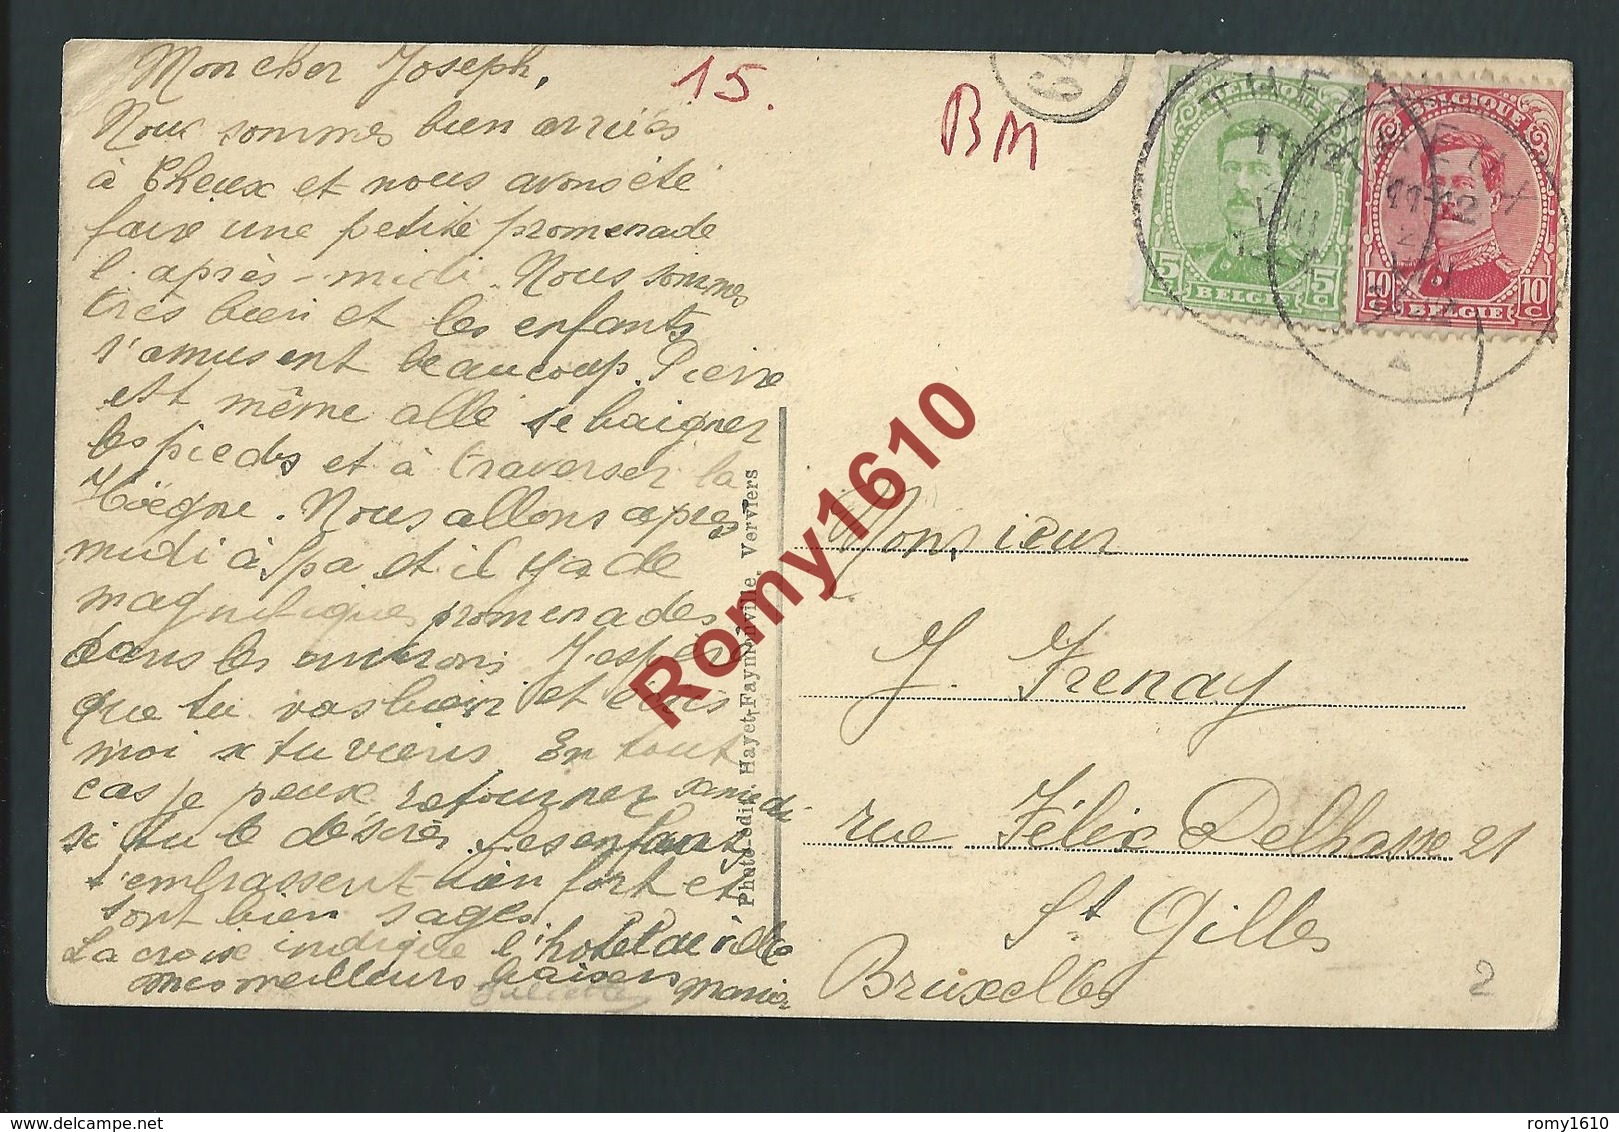 Mon cher Joseph,
Nous sommes bien arrivés
à Theux et nous avons été
faire une petite promenade
l'après-midi. Nous sommes
très bien et les enfants
s'amusent beaucoup. Pierre
est même allé se baigner
les pieds et à traverser la
Hoëgne. Nous allons après
midi à Spa et il y a de
magnifiques promenades
dans les environs. J'espère
que tu vas bien et écris
moi si tu viens. En tout
cas je peux retourner samedi
si tu le désires. Les enfants
t'embrassent bien fort et
sont bien sages.
La croix indique l'hotel de ville
mes meilleurs baisers Maria
Juliette
15.
BM
64
THEUX
BELGIQUE
5 5
C C
BELGIE
BELGIQUE
10 10
C C
BELGIE
Photo-édit. Hayet-Faymonville, Verviers
Monsieur
J. Frenay
rue Félix Delhasse 21
St Gilles
Bruxelles
2
Romy1610
www.delcampe.net
romy1610